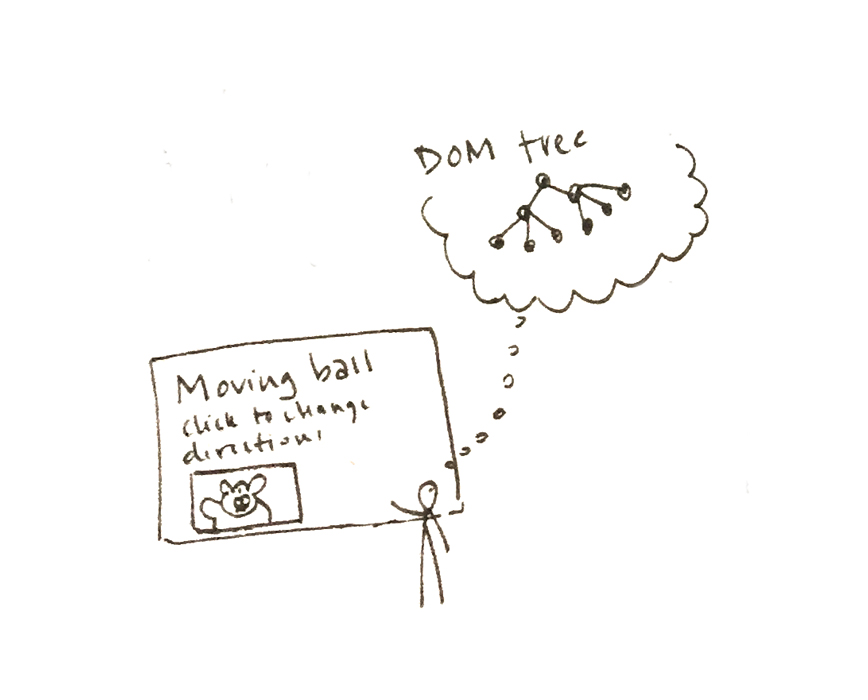 DOM tree
Moving ball
click to change
directions